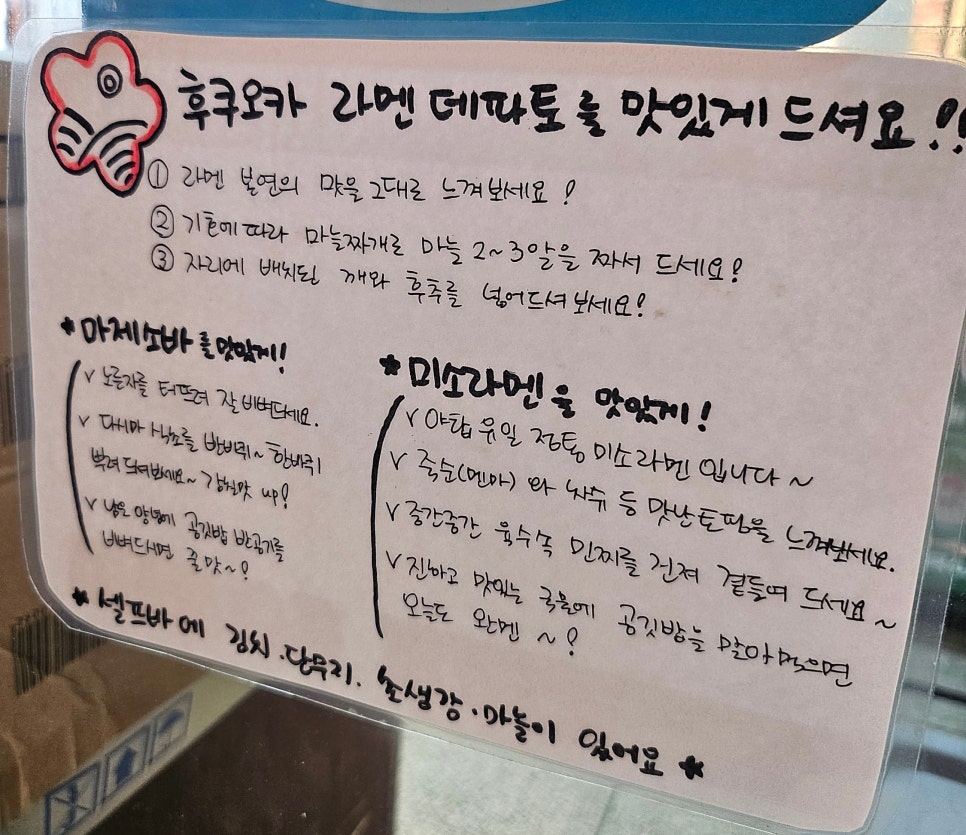 후쿠오카 라멘 데파토를 맛있게 드셔요!!
① 라멘 본연의 맛을 그대로 느껴보세요!
② 기호에 따라 마늘짜개로 마늘 2~3알을 짜서 드세요!
③ 자리에 배치된 깨와 후추를 넣어드셔보세요!
* 마제소바를 맛있게!
v 노른자를 터뜨려 잘 비벼드세요.
v 다시마 식초를 반바퀴~ 한바퀴
뿌려 드셔보세요~ 감칠맛 up!
v 남은 양념에 공깃밥 반공기를
비벼드시면 꿀맛~!
* 미소라멘을 맛있게!
v 야탑 유일 정통 미소라멘 입니다~
v 죽순(멘마)와 차슈 등 맛난토핑을 느껴보세요.
v 중간중간 육수속 민찌를 건져 곁들여 드세요~
v 진하고 맛있는 국물에 공깃밥을 말아먹으면
오늘도 완멘~!
* 셀프바에 김치.단무지.초생강.마늘이 있어요 *